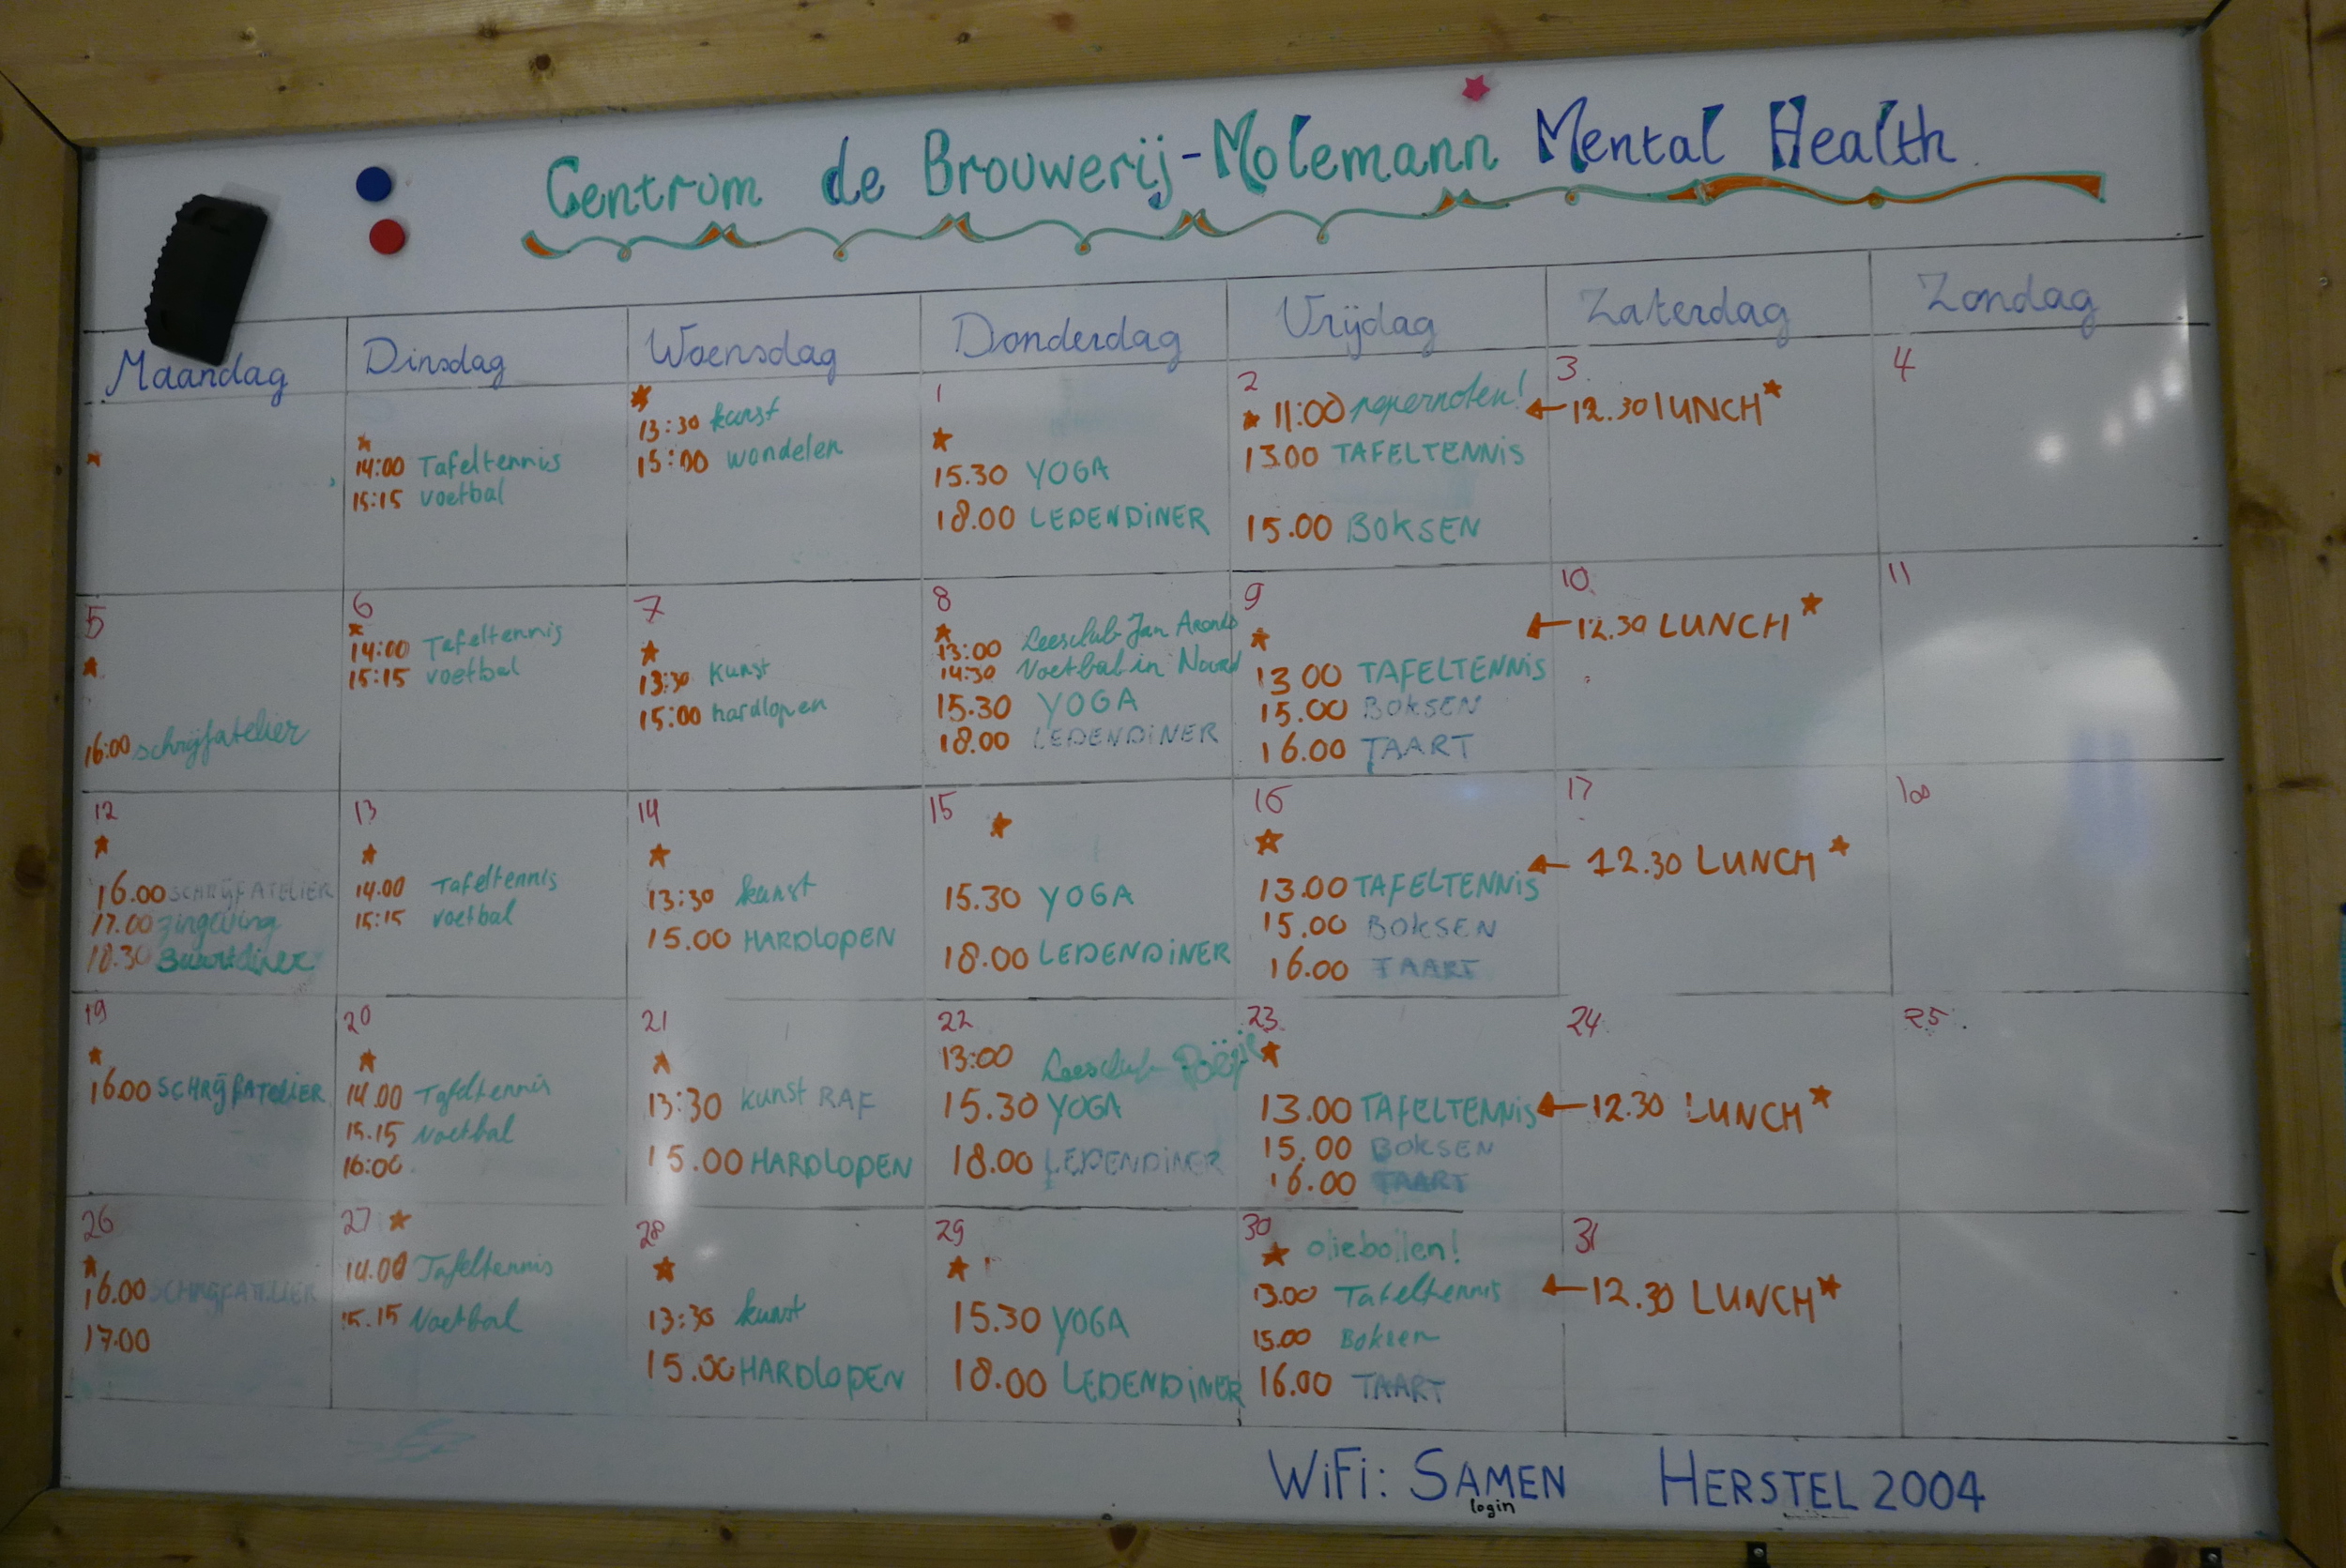 Centrum de Brouwerij-Molemann Mental Health
Maandag
Dinsdag
Woensdag
Donderdag
Vrijdag
Zaterdag
Zondag
14:00 Tafeltennis
15:15 voetbal
13:30 kunst
15:00 wandelen
1
15.30 YOGA
18.00 LEDENDINER
2
11:00 pepernoten!
13.00 TAFELTENNIS
15.00 BOKSEN
3
12.30 LUNCH
4
5
16:00 schrijfatelier
6
14:00 Tafeltennis
15:15 voetbal
7
13:30 kunst
15:00 hardlopen
8
13:00 Leesclub Jan Arends
14:30 Voetbal in Noord
15.30 YOGA
18.00 LEDENDINER
9
13 00 TAFELTENNIS
15.00 BOKSEN
16.00 TAART
10
12.30 LUNCH
11
12
16.00 SCHRIJFATELIER
17.00 zingeving
18.30 Buurtdiner
13
14.00 Tafeltennis
15:15 voetbal
14
13:30 kunst
15.00 HARDLOPEN
15
15.30 YOGA
18.00 LEDENDINER
16
13.00 TAFELTENNIS
15.00 BOKSEN
16.00 TAART
17
12.30 LUNCH
18
19
16.00 SCHRIJFATELIER
20
14.00 Tafeltennis
15.15 Voetbal
16:00
21
13:30 kunst RAF
15.00 HARDLOPEN
22
13:00 Leesclub Poëzie
15.30 YOGA
18.00 LEDENDINER
23
13.00 TAFELTENNIS
15.00 BOKSEN
16.00 TAART
24
12.30 LUNCH
25
26
16.00 SCHRIJFATELIER
17.00
27
14.00 Tafeltennis
15.15 Voetbal
28
13:30 kunst
15.00 HARDLOPEN
29
15.30 YOGA
18.00 LEDENDINER
30
oliebollen!
13.00 Tafeltennis
15.00 Boksen
16.00 TAART
31
12.30 LUNCH
WiFi: SAMEN HERSTEL 2004
login